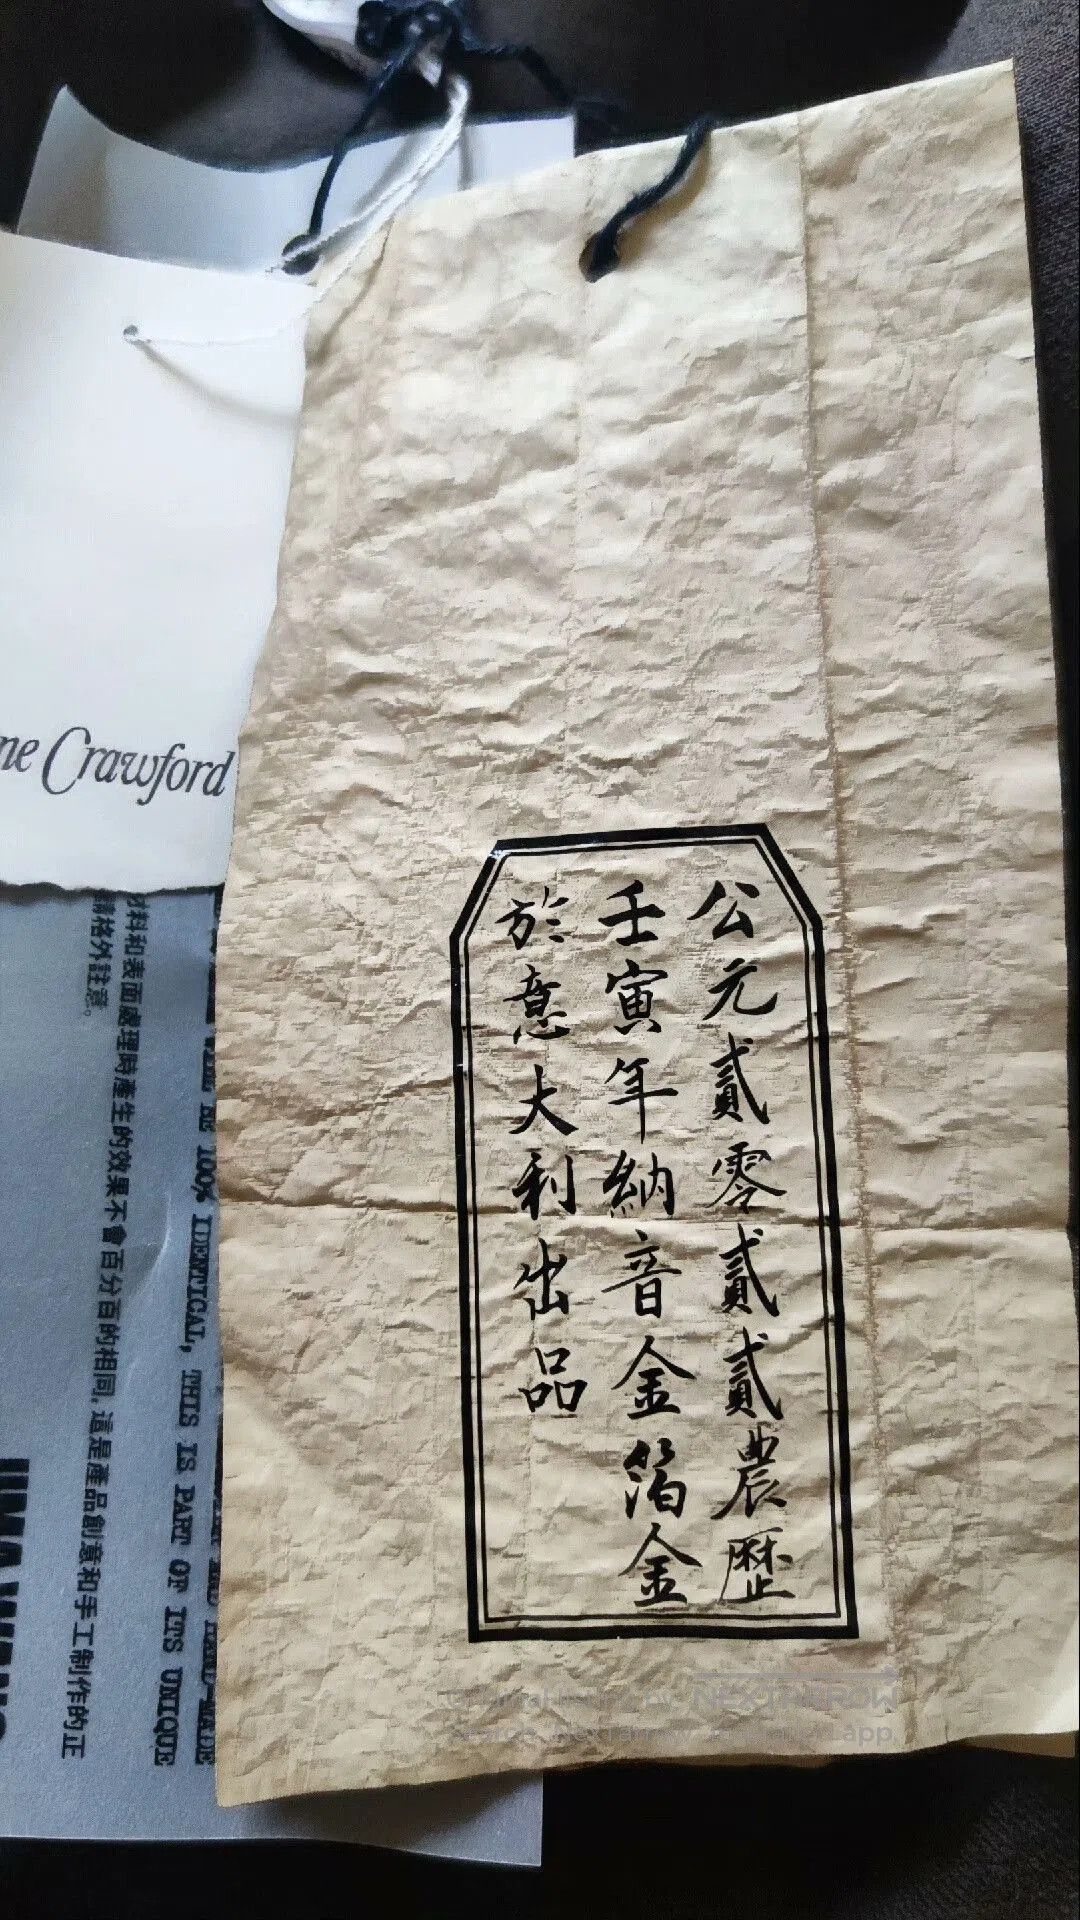 公元貳零貳貳農歷
壬寅年納音金箔金
於意大利出品
ne Crawford
材料和表面處理時產生的效果不會百分百的相同,這是產品創意和手工制作的正
請格外註意。
100% IDENTICAL, THIS IS PART OF ITS UNIQUE
HAND-MADE
UMA WANG
NEXTARROW